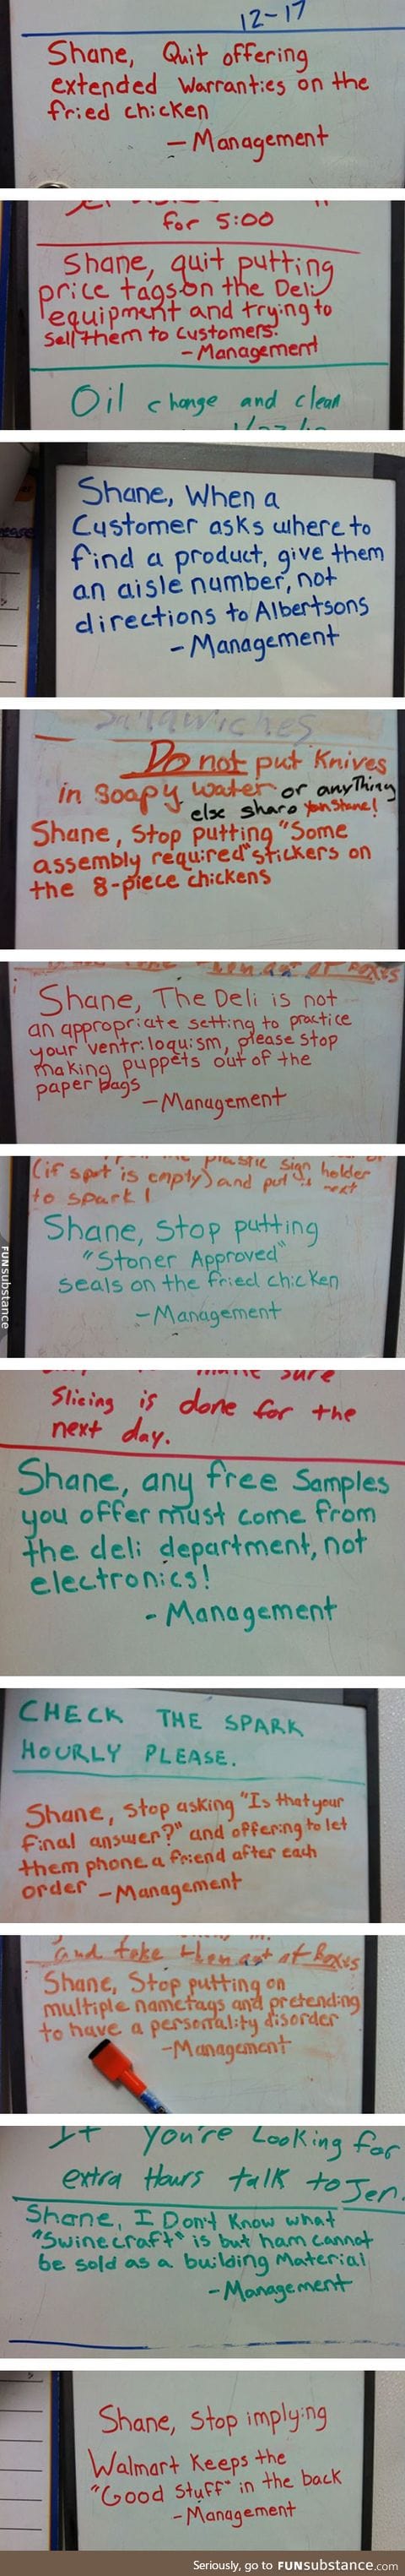 12-17
Shane, Quit offering
extended Warranties on the
fried chicken
- Management
for 5:00
Shane, quit putting
price tags on the Deli
equipment and trying to
sell them to customers.
- Management
Oil change and clean
Shane, When a
Customer asks where to
find a product, give them
an aisle number, not
directions to Albertsons
- Management
Sandwiches
Do not put Knives
in soapy water or anything
else sharp Yes Shane!
Shane, Stop putting "Some
assembly required" stickers on
the 8-piece chickens
Shane, The Deli is not
an appropriate setting to practice
your ventriloquism, please stop
making puppets out of the
paper bags
- Management
plastic sign holder
(if spot is empty) and put it next
to spark!
Shane, Stop putting
"Stoner Approved"
seals on the fried chicken
- Management
FUNsubstance
make sure
Slicing is done for the
next day.
Shane, any free Samples
you offer must come from
the deli department, not
electronics!
- Management
CHECK THE SPARK
HOURLY PLEASE.
Shane, Stop asking "Is that your
final answer?" and offering to let
them phone a friend after each
order - Management
and take them out of Boxes
Shane, Stop putting on
multiple nametags and pretending
to have a personality disorder
- Management
If you're Looking for
extra Hours talk to Jen.
Shane, I Don't Know what
"Swinecraft" is but ham cannot
be sold as a building Material
- Management
Shane, Stop implying
Walmart Keeps the
"Good Stuff" in the back
- Management
Seriously, go to FUNsubstance.com